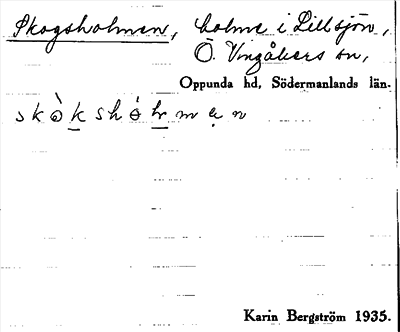 Skogsholmen, holme i Lillsjön,
Ö. Vingåkers sn,
Oppunda hd, Södermanlands län.
Karin Bergström 1935.